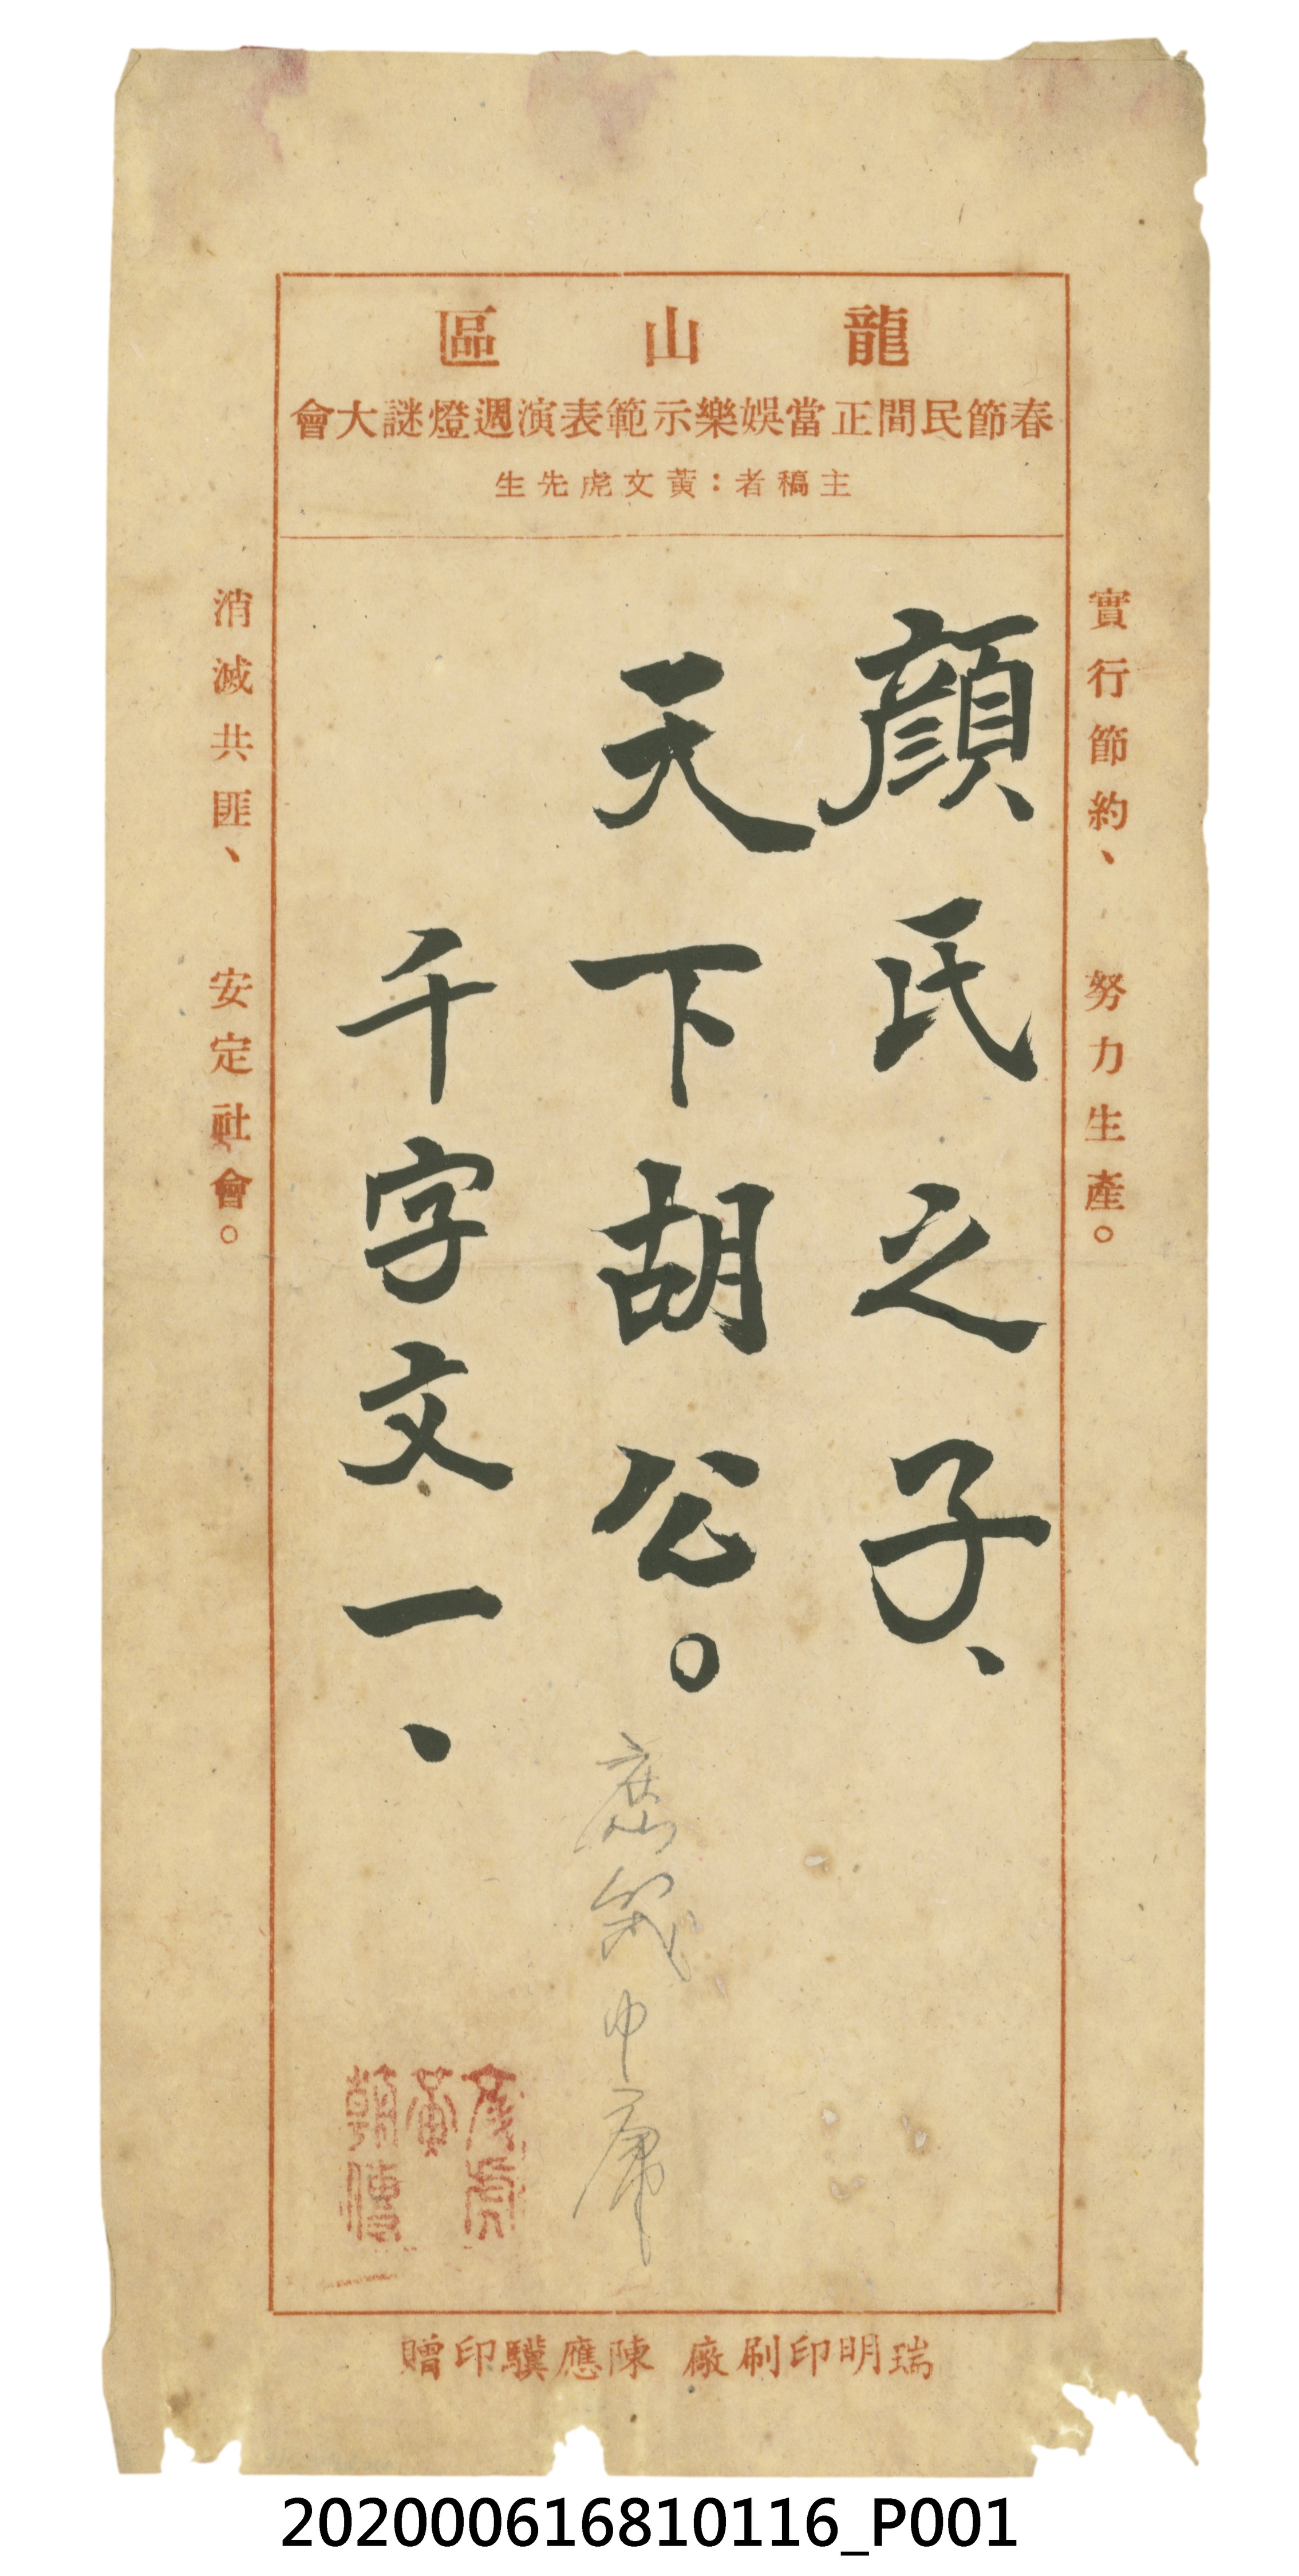 龍山區
春節民間正當娛樂示範表演週燈謎大會
主稿者：黃文虎先生
實行節約、努力生產。
顏氏之子、
天下胡公。
庶幾中庸
千字文一、
消滅共匪、安定社會。
文虎
黃
朝傳
瑞明印刷廠 陳應驥印贈
202000616810116_P001